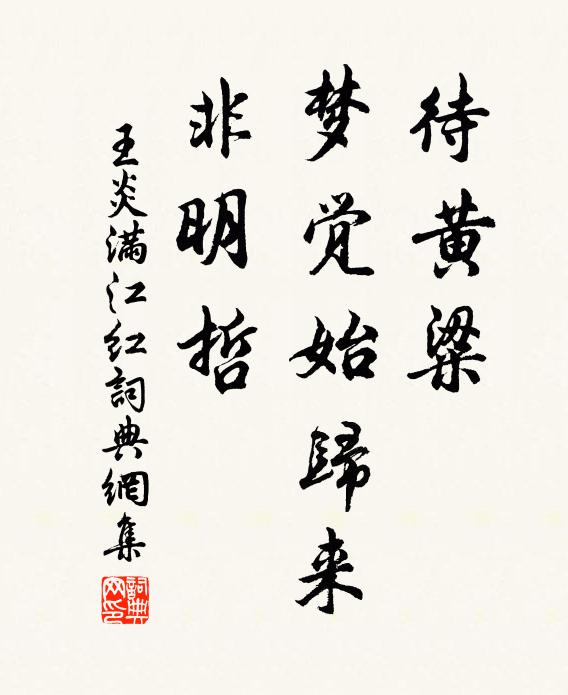 待黄粱
梦觉始歸来
非明哲
王炎满江红詞典網集
詞典
网印